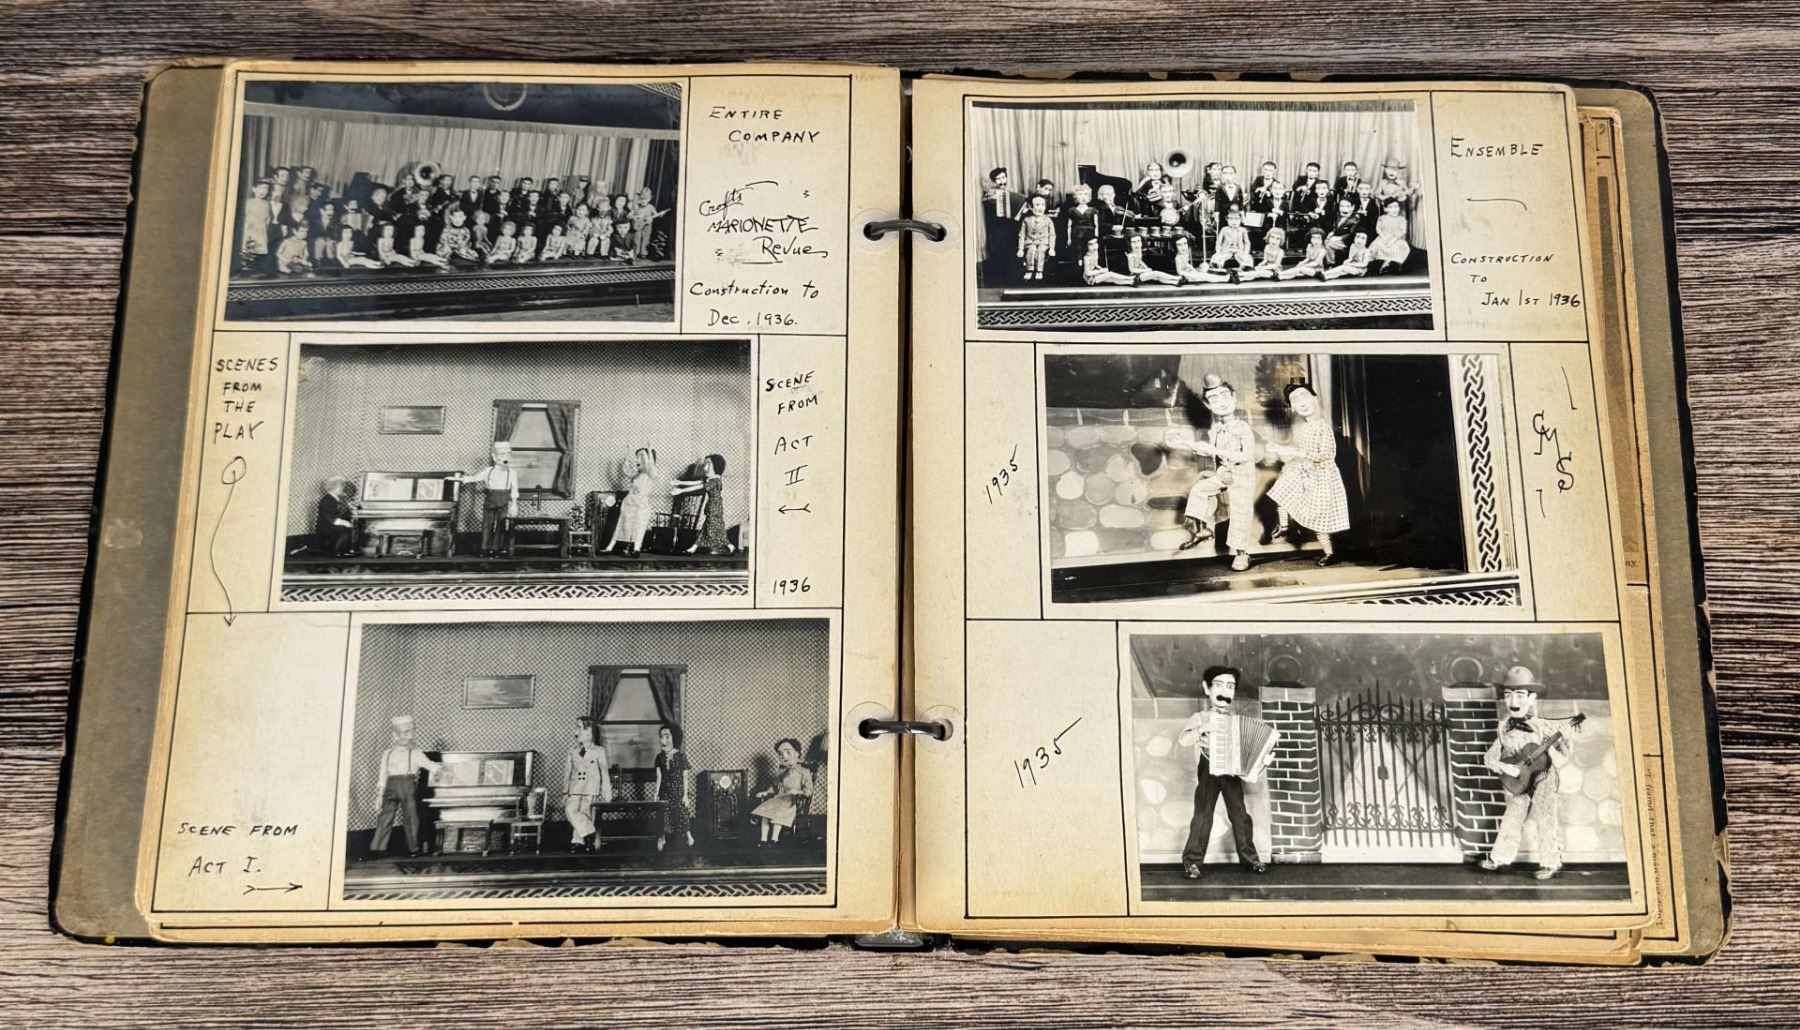 ENTIRE
COMPANY
Crofts
MARIONETTE
Revue
Construction to
Dec. 1936.
SCENES
FROM
THE
PLAY
SCENE
FROM
ACT
II
1936
SCENE FROM
ACT I.
ENSEMBLE
CONSTRUCTION
TO
JAN 1ST 1936
1935
1935